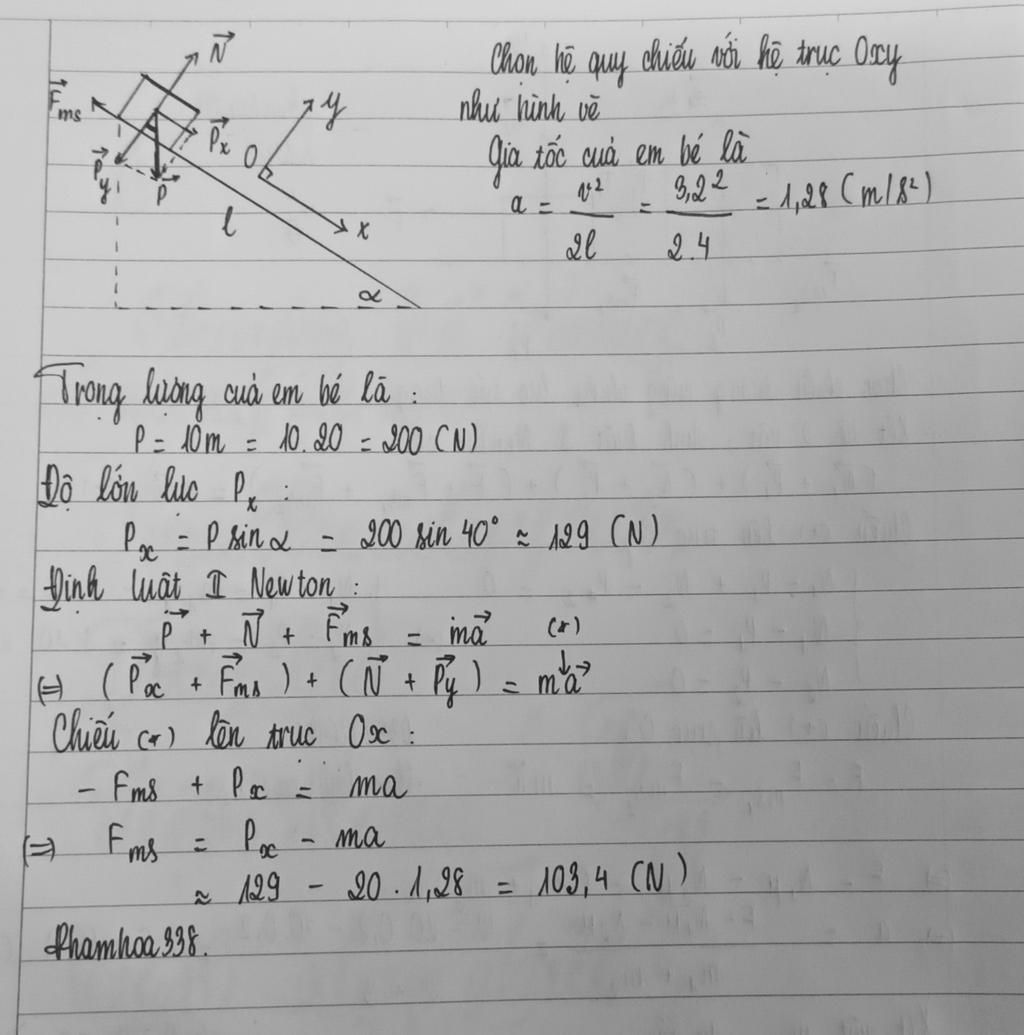 N⃗
F⃗ms
y
P⃗x
O
P⃗y
P⃗
l
x
α
Chọn hệ quy chiếu với hệ trục Oxy
như hình vẽ
Gia tốc cuả em bé là
a = v²/2l = 3,2²/2.4 = 1,28 (m/s²)
Trọng lượng cuả em bé là :
P = 10m = 10.20 = 200 (N)
Độ lớn lực Px :
Px = P sin α = 200 sin 40° ≈ 129 (N)
Định luật II Newton :
P⃗ + N⃗ + F⃗ms = ma⃗ (*)
(=) (P⃗x + F⃗ms) + (N⃗ + P⃗y) = ma⃗
Chiếu (*) lên trục Ox :
- Fms + Px = ma
(=) Fms = Px - ma
≈ 129 - 20 . 1,28 = 103,4 (N)
Phamhoa338.